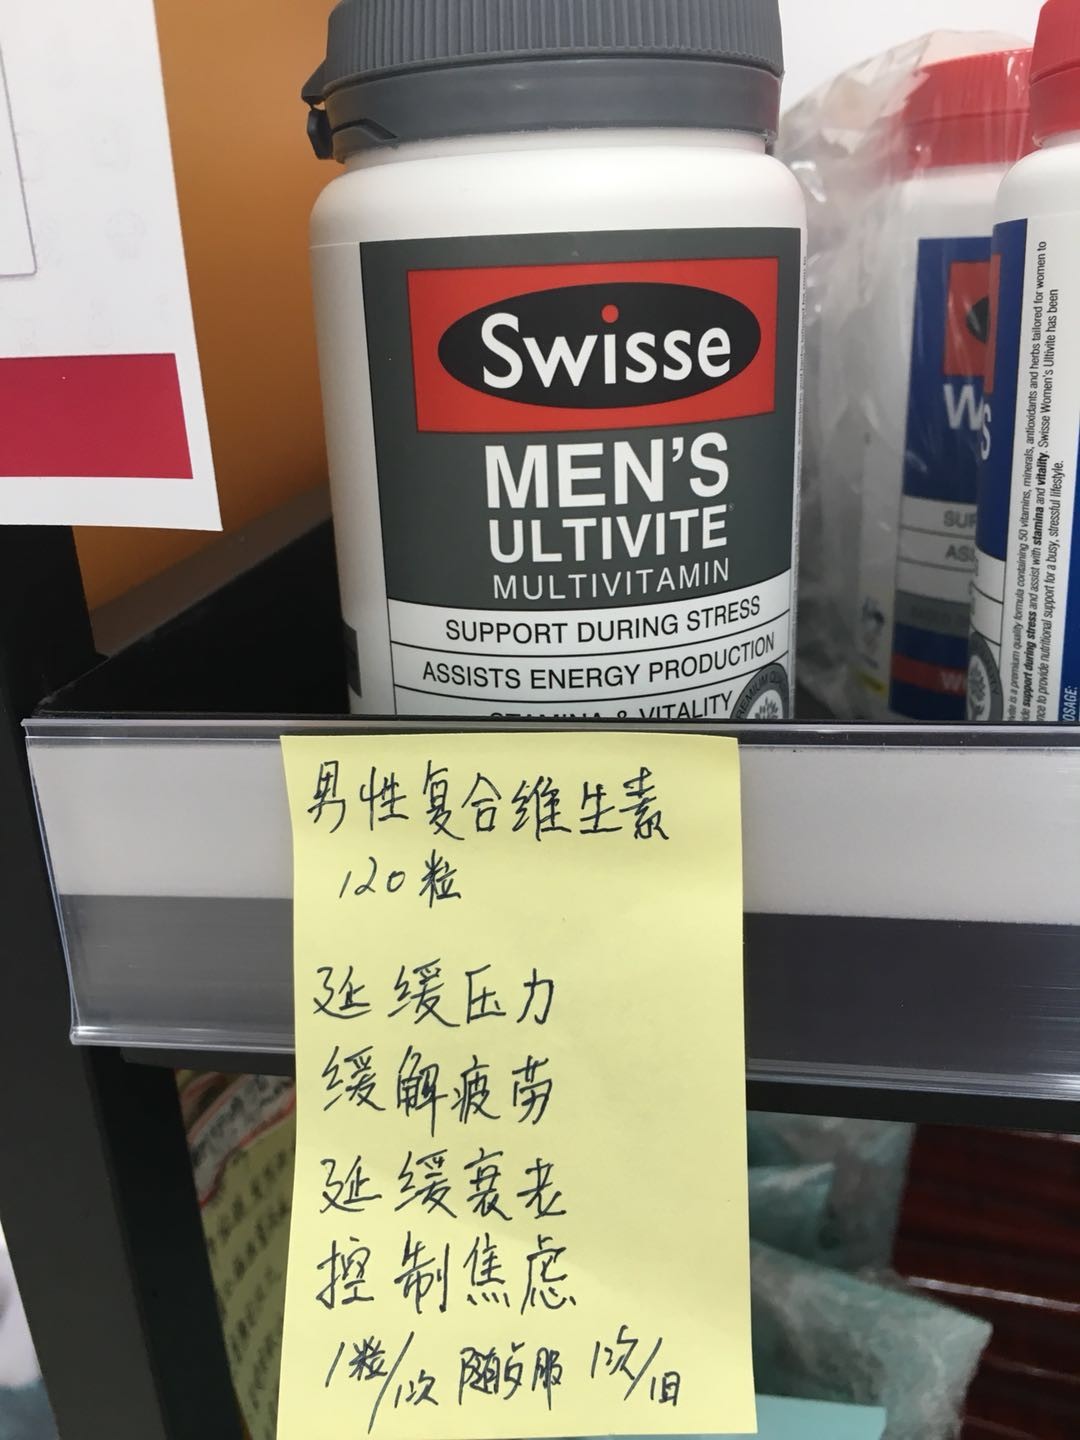 Swisse
MEN'S
ULTIVITE
MULTIVITAMIN
SUPPORT DURING STRESS
ASSISTS ENERGY PRODUCTION
STAMINA & VITALITY
男性复合维生素
120粒
延缓压力
缓解疲劳
延缓衰老
控制焦虑
1粒/1次 随点服 1次/1日
W
SUP
ASS
S
is a premium quality formula containing 50 vitamins, minerals, antioxidants and herbs tailored for women to
support during stress and assist with stamina and vitality. Swisse Women's Ultivite has been
to provide nutritional support for a busy, stressful lifestyle.